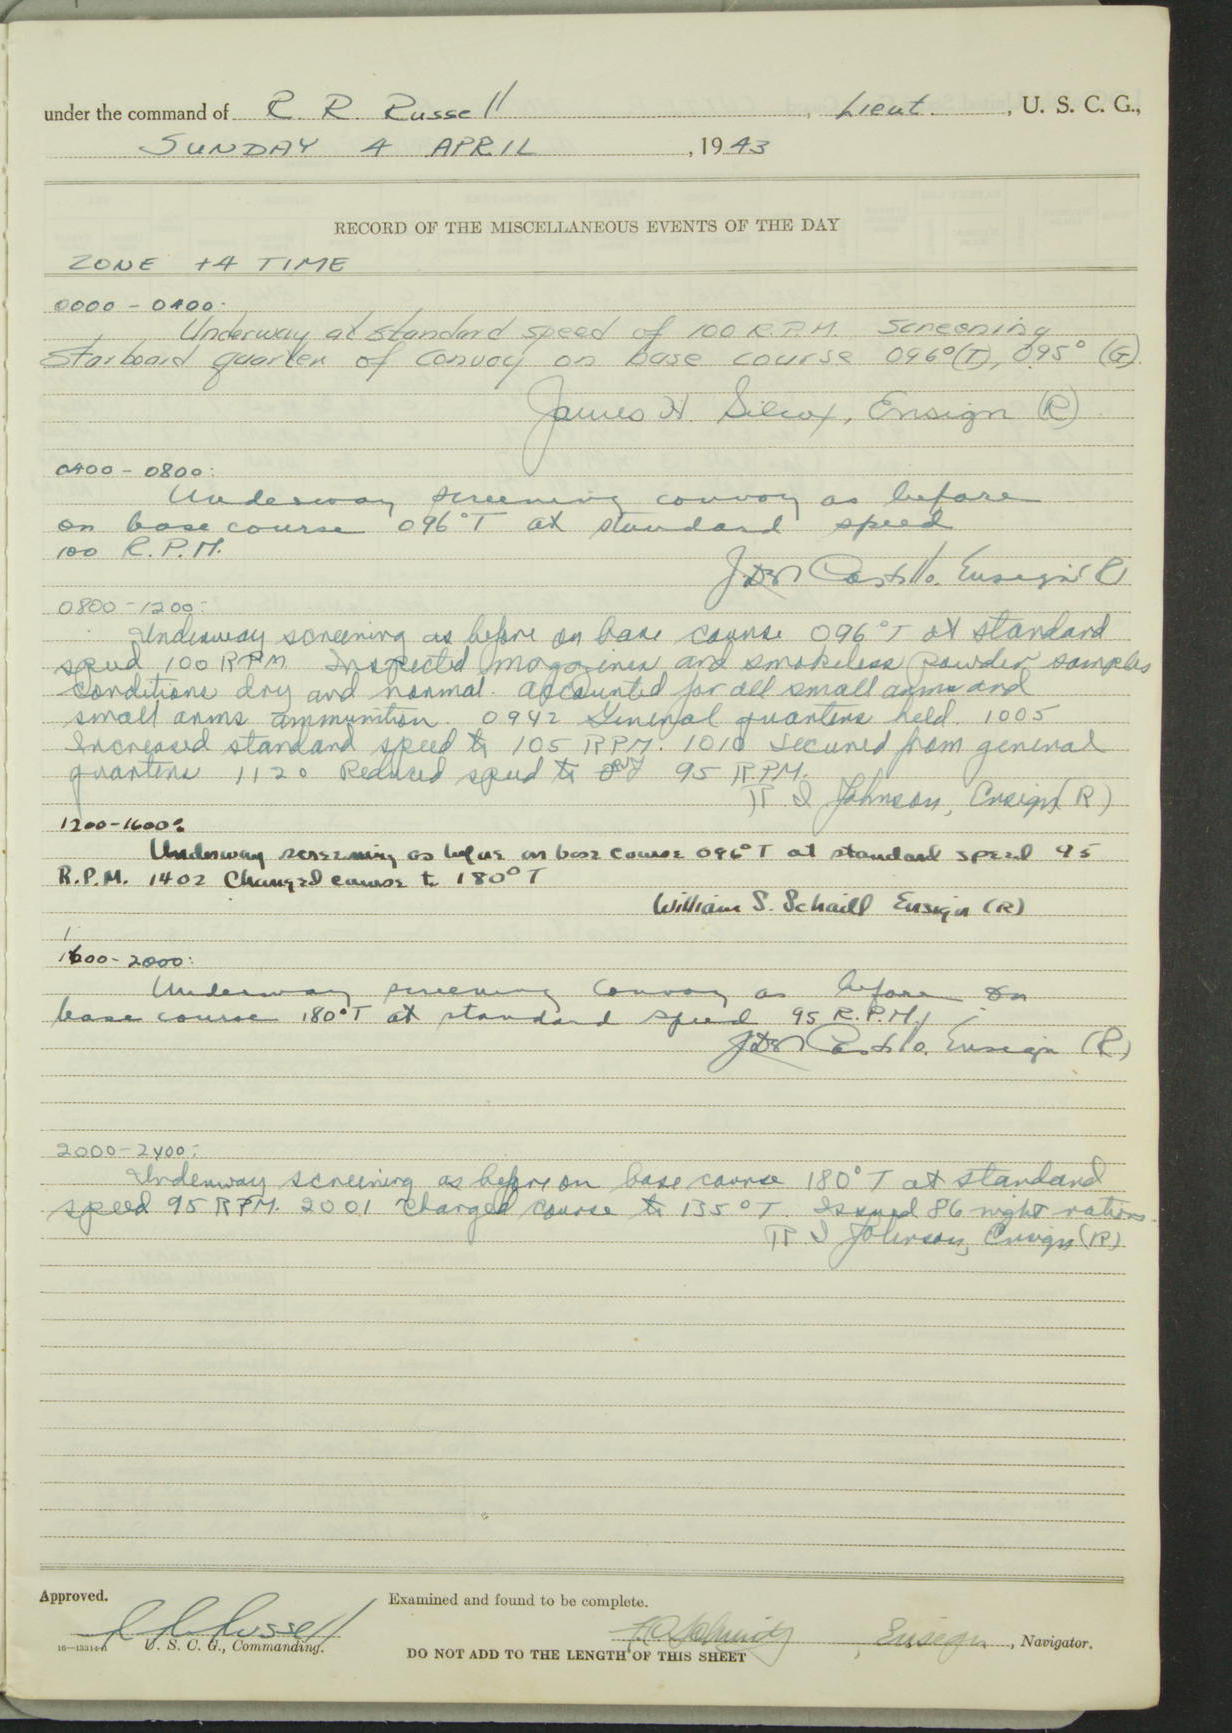 under the command of R. R. Russell, Lieut., U. S. C. G.,
SUNDAY 4 APRIL, 1943
RECORD OF THE MISCELLANEOUS EVENTS OF THE DAY
ZONE +4 TIME
0000 - 0400:
Underway at standard speed of 100 R.P.M. Screening
starboard quarter of convoy on base course 096°(T), 095° (G).
James H. Silcox, Ensign (R)
0400 - 0800:
Underway screening convoy as before
on base course 096°T at standard speed
100 R.P.M.
Castillo. Ensign (R)
0800 - 1200:
Underway screening as before on base course 096°T at standard
speed 100 RPM Inspected magazines and smokeless powder samples
conditions dry and normal. Accounted for all small arms and
small arms ammunition. 0942 General quarters held. 1005
Increased standard speed to 105 RPM. 1010 Secured from general
quarters 1120 Reduced speed to 95 RPM.
R I Johnson, Ensign (R)
1200-1600:
Underway screening as before on base course 096°T at standard speed 95
R.P.M. 1402 Changed course to 180°T
William S. Schaill Ensign (R)
1600-2000:
Underway screening convoy as before on
base course 180°T at standard speed 95 R.P.M.
Castillo. Ensign (R)
2000-2400:
Underway screening as before on base course 180°T at standard
speed 95 RPM. 2001 Changed course to 135°T. Issued 86 night rations.
R I Johnson, Ensign (R)
Approved. Examined and found to be complete.
R R Russell Ensign, Navigator.
16—13314-1 U. S. C. G., Commanding.
DO NOT ADD TO THE LENGTH OF THIS SHEET